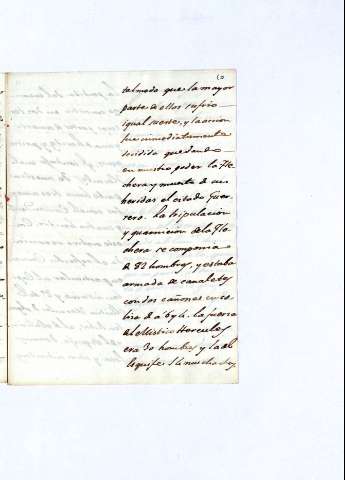 tal modo que la mayor
parte de ellos sufrio
igual suerte, y la accion
fue inmediatamente
decidida quedando
en nuestro poder la Fle
chera y muerto de sus
heridas el citado Guer
rero. La tripulacion
y guarnicion de la Fle
chera se componia
de 72 hombres, y estaba
armada de canaletes
con dos cañones en co
liza de a 6 y 4. la fuerza
del Mistico Hercules
era 30 hombres y la del
Esquife 16 nuestra